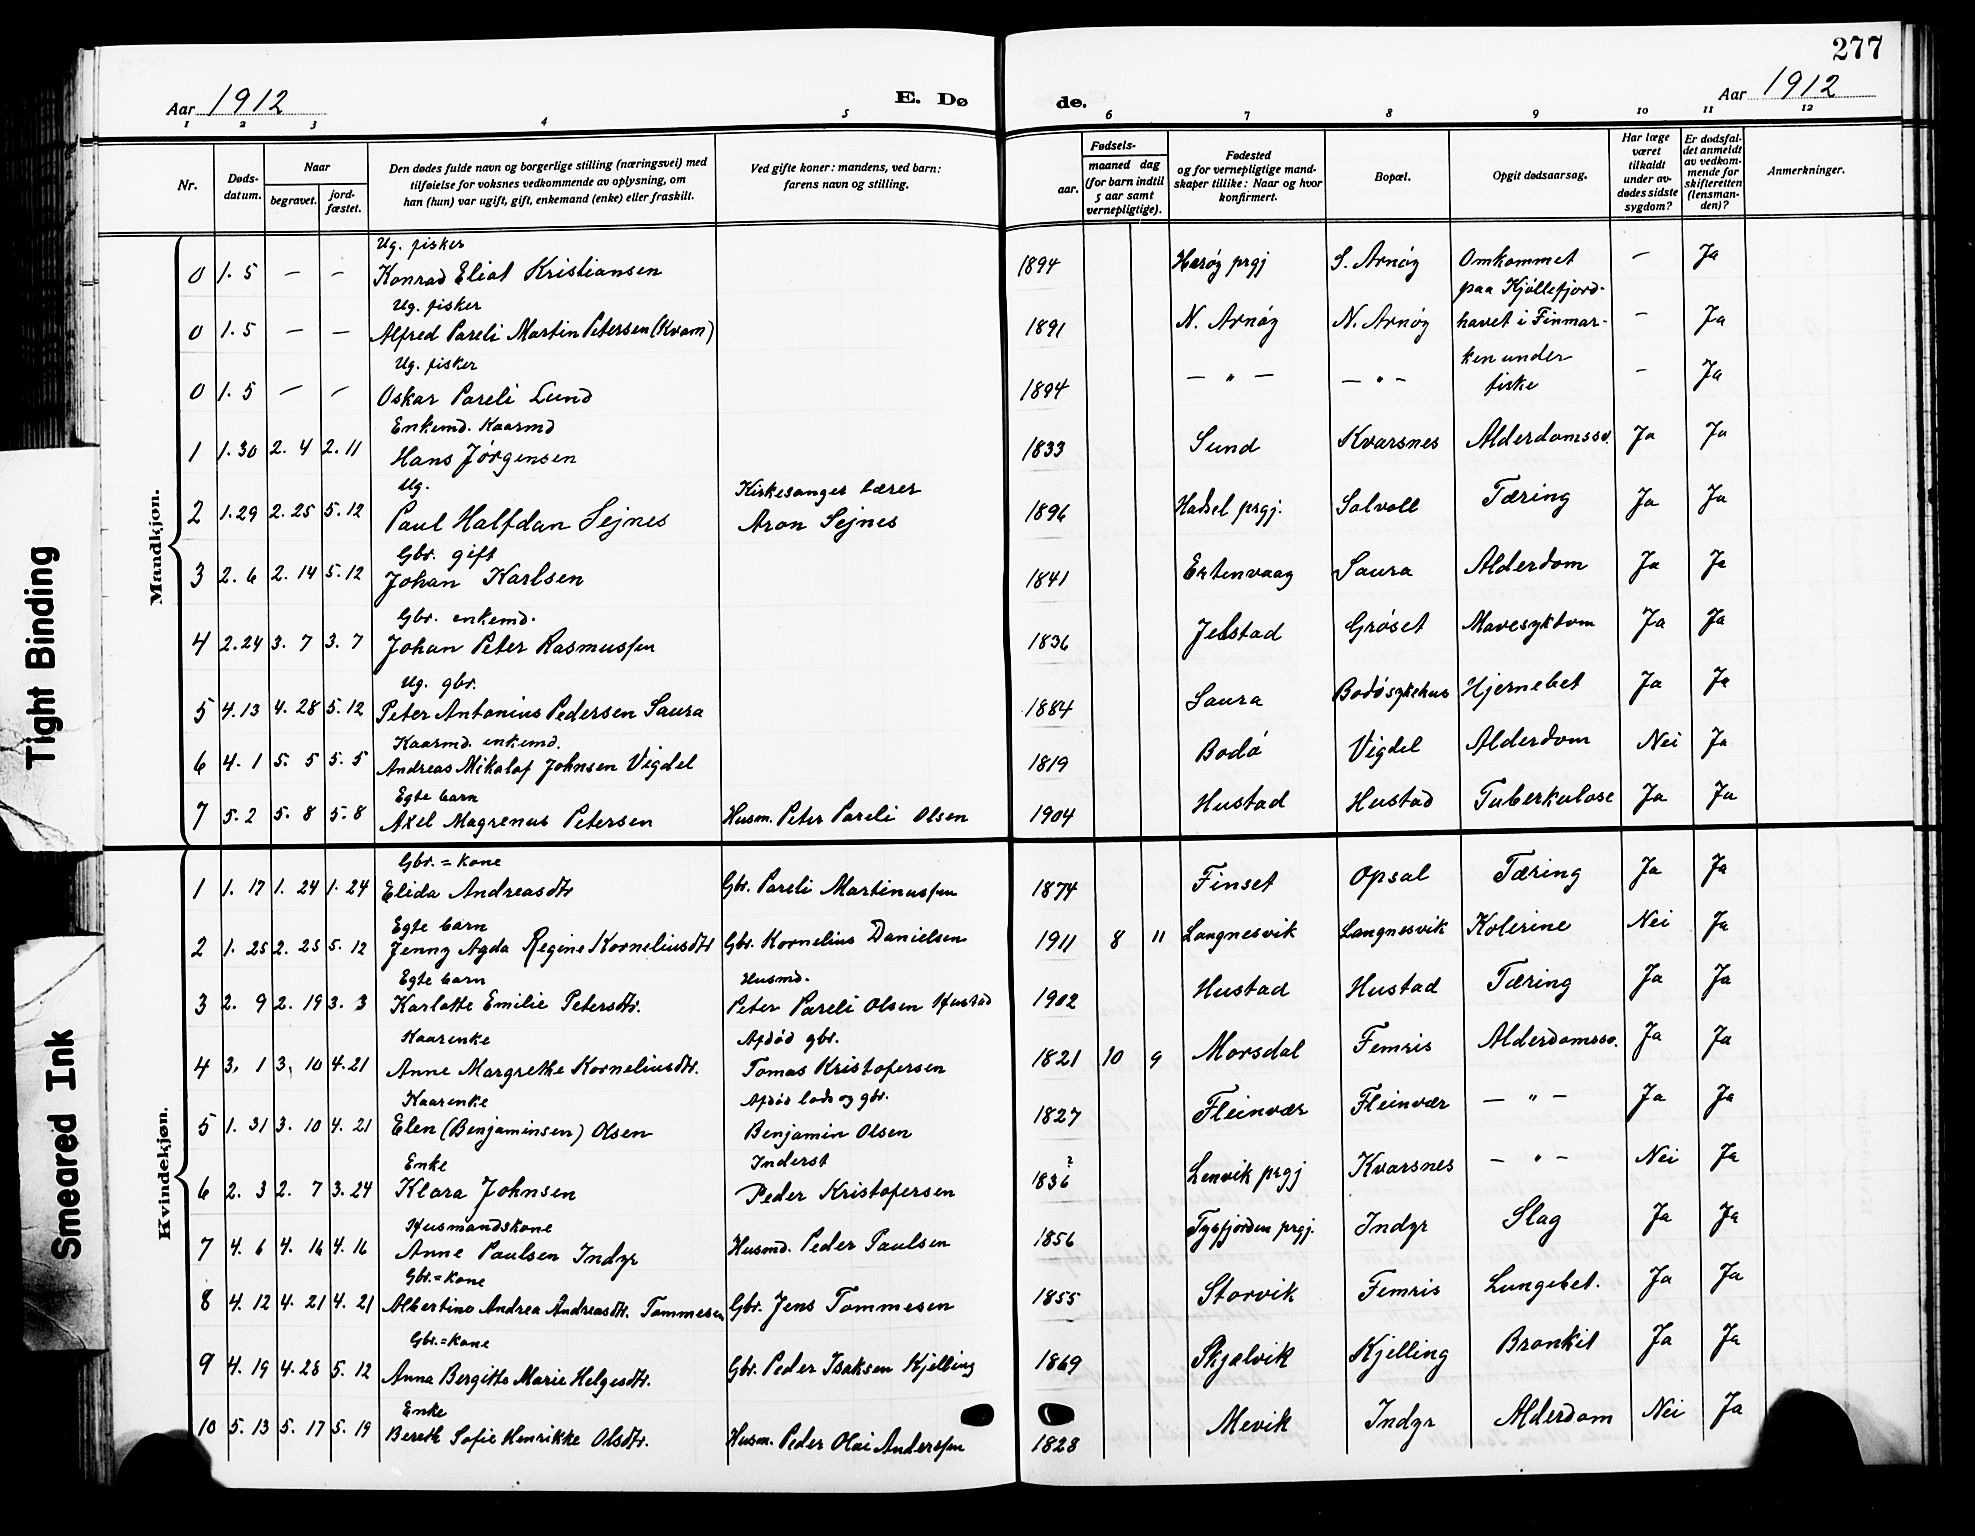 277
Aar 1912
E. Dø
de.
Aar 1912
1 2 3 4 5 6 7 8 9 10 11 12
Nr.
Døds-
datum.
Naar
begravet.
jord-
fæstet.
Den dødes fulde navn og borgerlige stilling (næringsvei) med
tilføielse for voksnes vedkommende av oplysning, om
han (hun) var ugift, gift, enkemand (enke) eller fraskilt.
Ved gifte koner: mandens, ved barn:
farens navn og stilling.
Fødsels-
aar.
maaned dag
(for barn indtil
5 aar samt
vernepligtige).
Fødested
og for vernepligtige mand-
skaper tillike: Naar og hvor
konfirmert.
Bopæl.
Opgit dødsaarsag.
Har læge
været
tilkaldt
under av-
dødes sidste
sygdom?
Er dødsfal-
det anmeldt
av vedkom-
mende for
skifteretten
(lensman-
den)?
Anmerkninger.
Mandkjøn.
Ug. fisker
0 1. 5 — — Konrad Eliot Kristiansen 1894 Herøy prgj S. Arnøy Omkommet — Ja
paa Kjøllefjord-
Ug. fisker
0 1. 5 — — Alfred Pareli Martin Petersen (Kvam) 1891 N. Arnøy N. Arnøy havet i Finmar- — Ja
ken under
Ug. fisker
0 1. 5 — — Oskar Pareli Lund 1894 — " — — " — fiske — Ja
Enkemd. Kaarmd
1 1.30 2. 4 2. 11 Hans Jørgensen 1833 Sund Kvarsnes Alderdomssv. Ja Ja
Ug. Kirkesanger lærer
2 1.29 2. 25 5. 12 Paul Halfdan Sejnes Aron Sejnes 1896 Hadsel prgj. Solvoll Tæring Ja Ja
Gbr. gift
3 2. 6 2. 14 5. 12 Johan Karlsen 1841 Ertenvaag Saura Alderdom Ja Ja
Gbr. enkemd.
4 2.24 3. 7 3. 7 Johan Peter Rasmussen 1836 Jelstad Grøset Mavesykdom Ja Ja
Ug. gbr.
5 4.13 4. 28 5. 12 Peter Antonius Pedersen Saura 1884 Saura Bodøsykehus Hjernebet Ja Ja
Kaarmd. enkemd.
6 4. 1 5. 5 5. 5 Andreas Mikalaf Johnsen Vigdel 1819 Bodø Vigdel Alderdom Nei Ja
Egte barn
7 5. 2 5. 8 5. 8 Axel Magrenus Petersen Husm. Peter Pareli Olsen 1904 Hustad Hustad Tuberkulose Ja Ja
Kvindekjøn.
Gbr. = kone
1 1. 17 1. 24 1. 24 Elida Andreasdtr Gbr. Pareli Martinussen 1874 Finset Opsal Tæring Ja Ja
Egte barn
2 1. 25 2. 25 5. 12 Jenny Agda Regine Korneliusdtr Gbr. Kornelius Danielsen 1911 8 11 Langnesvik Langnesvik Kolerine Nei Ja
Egte barn Husmd.
3 2. 9 2. 19 3. 3 Karlotte Emilie Petersdtr. Peter Pareli Olsen Hustad 1902 Hustad Hustad Tæring Ja Ja
Kaarenke Afdød gbr.
4 3. 1 3. 10 4. 21 Anne Margrethe Korneliusdtr. Tomas Kristofersen 1821 10 9 Morsdal Femris Alderdomssv. Ja Ja
Kaarenke Afdød lods og gbr.
5 1. 31 3. 10 4. 21 Elen (Benjaminsen) Olsen Benjamin Olsen 1827 Fleinvær Fleinvær — " — Ja Ja
Enke Inderst
6 2. 3 2. 7 3. 24 Klara Johnsen Peder Kristofersen 1836 ? Lenvik prgj Kvarsnes — " — Nei Ja
Husmandskone
7 4. 6 4. 16 4. 16 Anne Paulsen Indyr Husmd. Peder Paulsen 1856 Tysfjorden prgj. Indyr Slag Ja Ja
Gbr. = kone
8 4. 12 4. 21 4. 21 Albertine Andrea Andreasdtr. Tommesen Gbr. Jens Tommesen 1855 Storvik Femris Lungebet. Ja Ja
Gbr. = kone
9 4. 19 4. 28 5. 12 Anna Bergitte Marie Helgesdtr. Gbr. Peder Isaksen Kjelling 1869 Skjælvik Kjelling Bronkit Ja Ja
Enke
10 5. 13 5. 17 5. 19 Bereth Sofie Henrikke Olsdtr. Husm. Peder Olai Anderssen 1828 Mevik Indyr Alderdom Nei Ja
Tight Binding
Smeared Ink